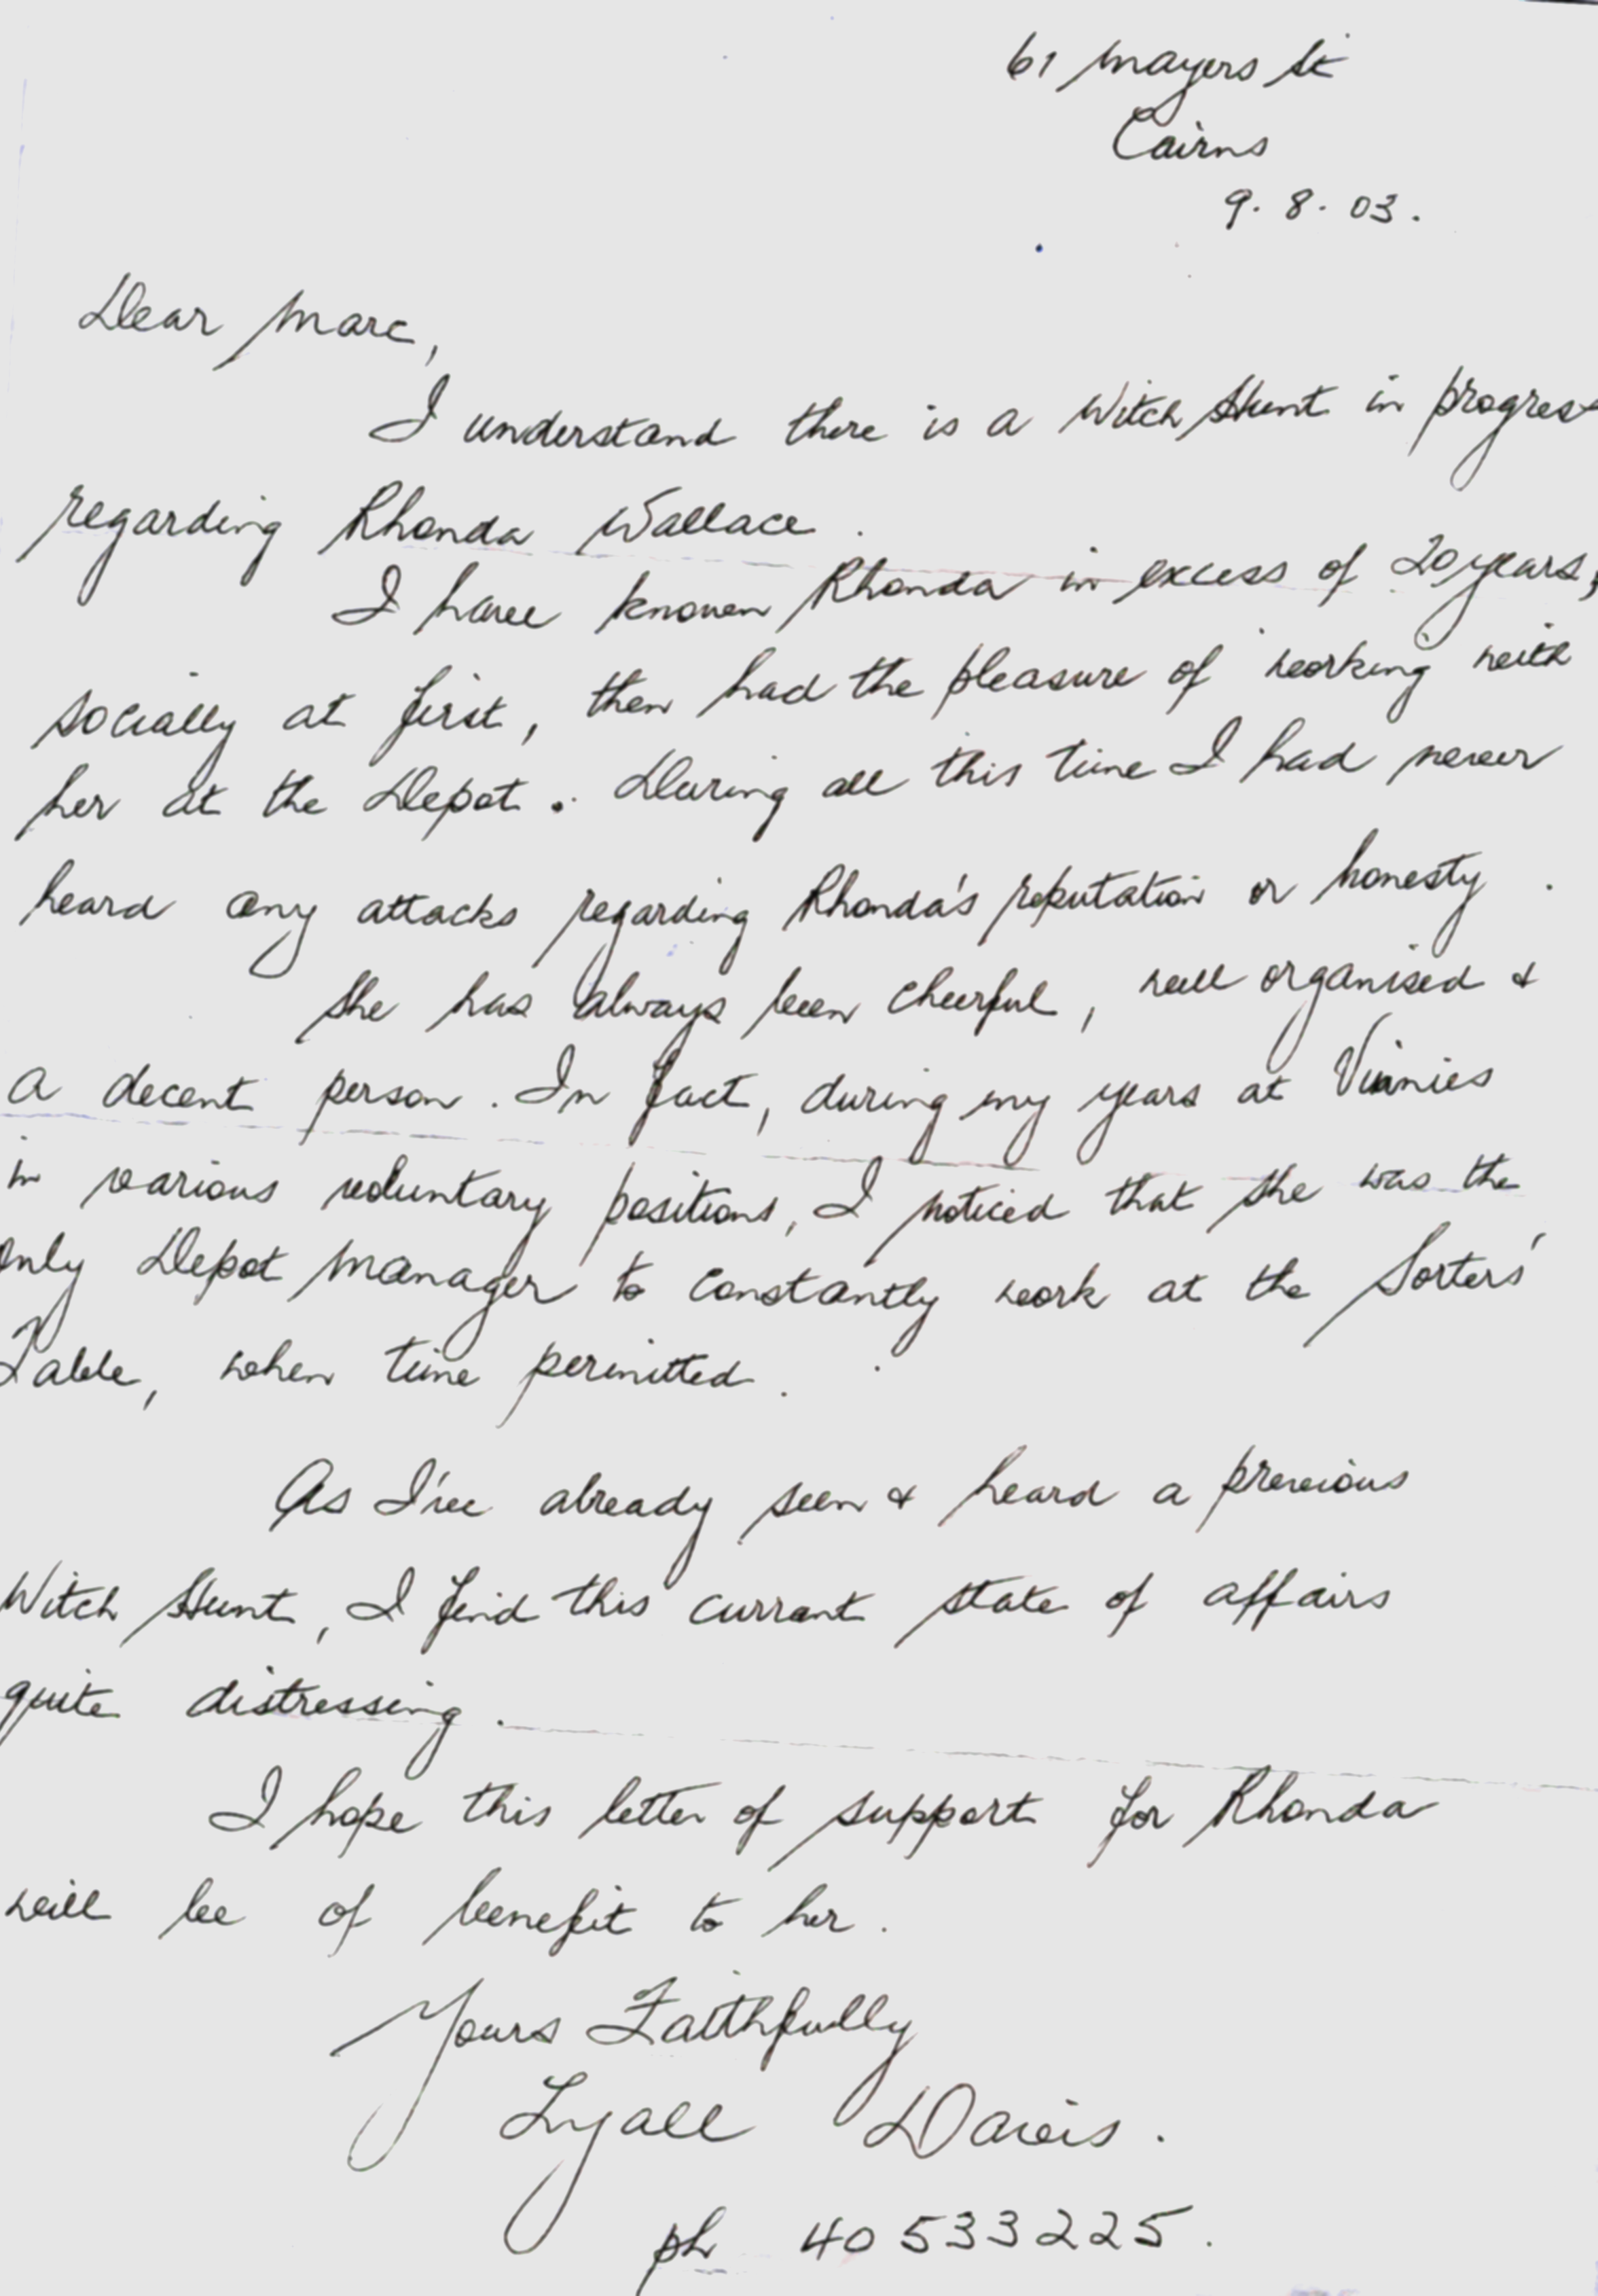 61 Mayers St
Cairns
9.8.03.
Dear Marc,
I understand there is a Witch Hunt in progress
regarding Rhonda Wallace.
I have known Rhonda in excess of 20 years,
socially at first, then had the pleasure of working with
her at the Depot. During all this time I had never
heard any attacks regarding Rhonda's reputation or honesty.
She has always been cheerful, well organised &
a decent person. In fact, during my years at Vinnies
in various voluntary positions, I noticed that she was the
only Depot Manager to constantly work at the Sorters'
Table, when time permitted.
As I've already seen & heard a previous
Witch Hunt, I find this currant state of affairs
quite distressing.
I hope this letter of support for Rhonda
will be of benefit to her.
Yours Faithfully
Lyall Davis.
ph 40 533225.